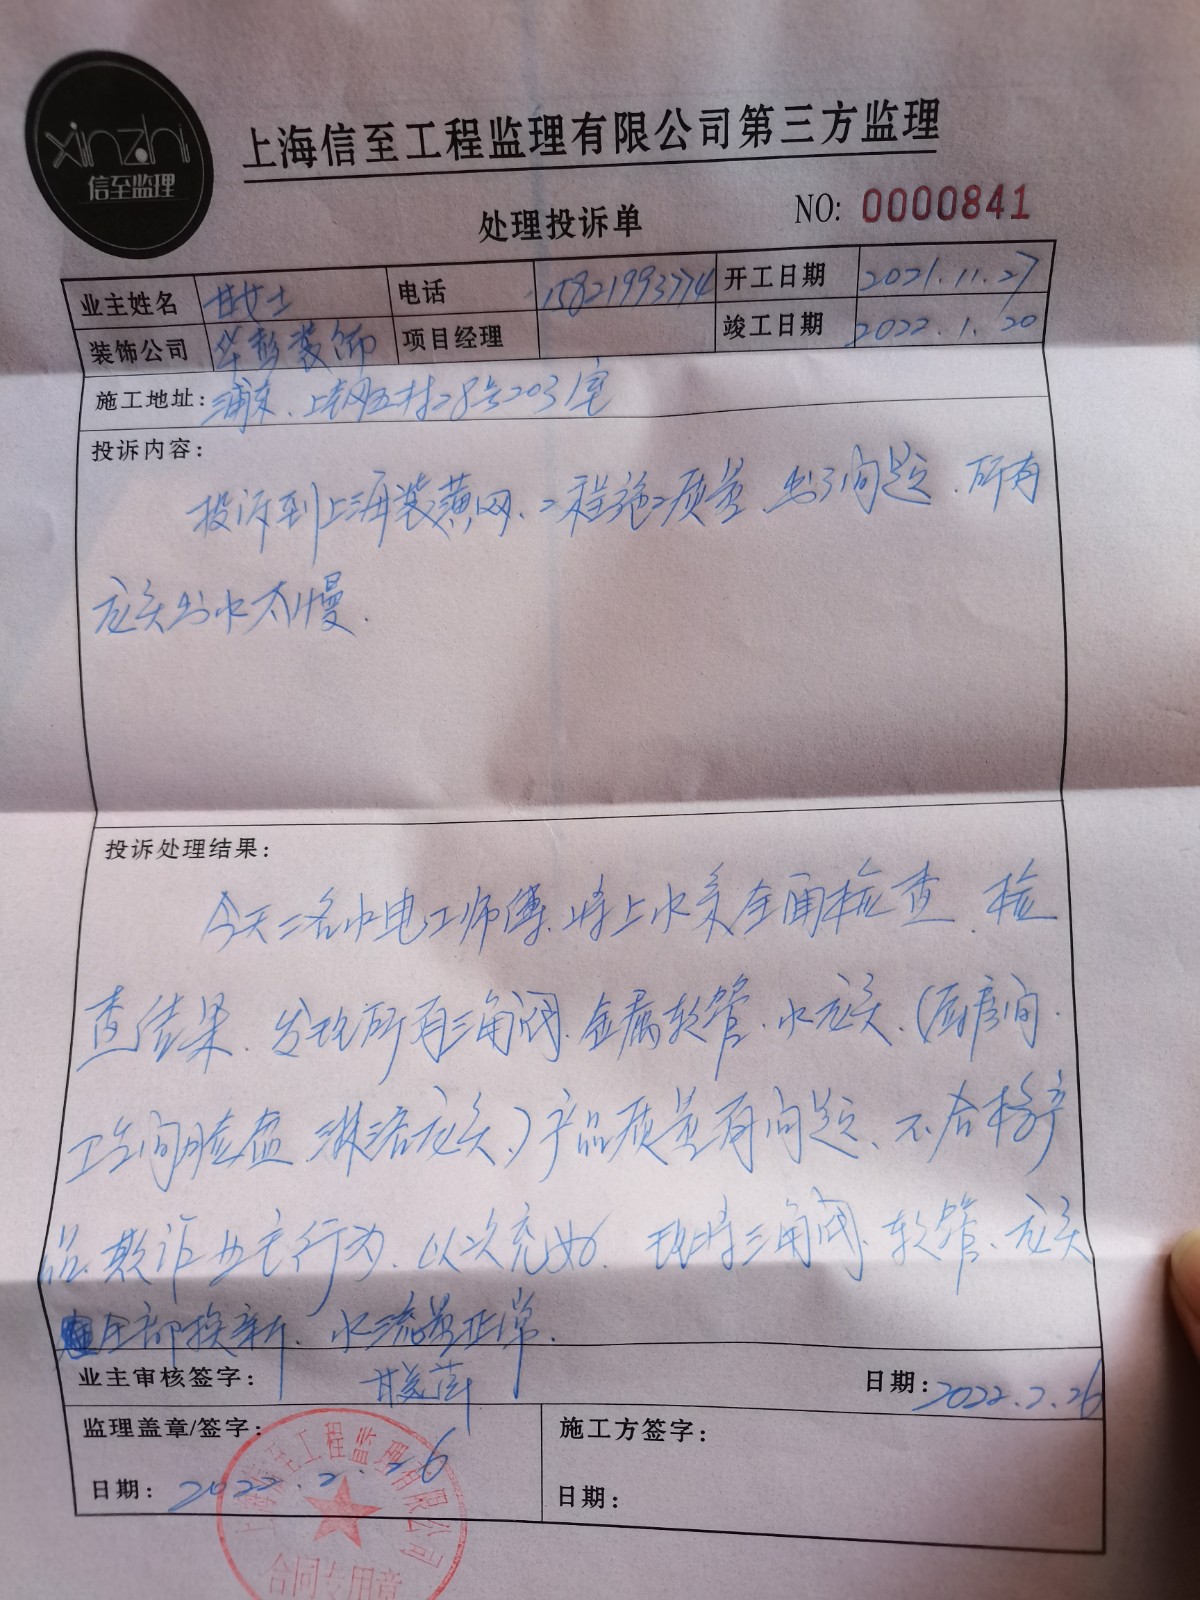 xinzhi
信至监理
上海信至工程监理有限公司第三方监理
处理投诉单 NO: 0000841
业主姓名 甘女士 电话 15821993774 开工日期 2021.11.27
装饰公司 华彭装饰 项目经理 竣工日期 2022.1.20
施工地址: 浦东、上钢五村28号203室
投诉内容:
投诉到上海装潢网、工程施工质量出了问题、所有
龙头出水太慢.
投诉处理结果:
今天二名水电工师傅将上水系全面检查 检
查结果、发现所有三角阀、金属软管、水龙头、(厨房间、
卫生间脸盆 淋浴龙头)产品质量有问题、不合格产
品、欺诈业主行为、以次充好. 现将三角阀、软管、龙头
全部换新、水流量正常.
业主审核签字: 日期: 2022.2.26
监理盖章/签字: 施工方签字:
日期: 2022.2.26 日期:
上海信至工程监理有限公司
合同专用章